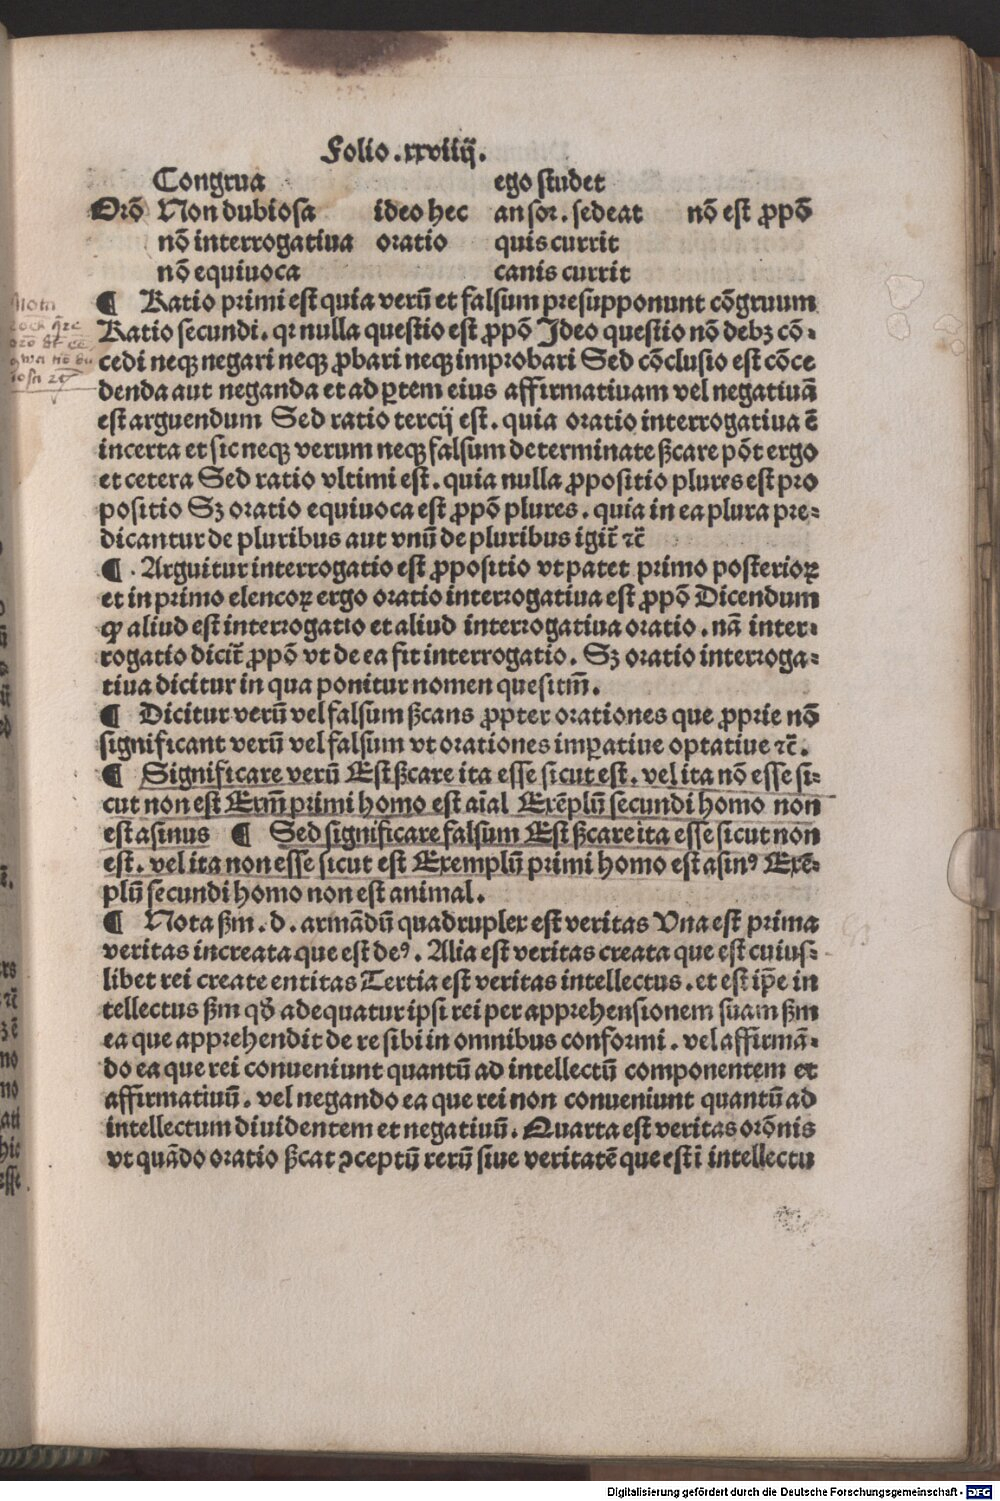 Folio .xxviiij.
Congrua ego studet
Orõ Non dubiosa ideo hec an sor. sedeat nõ est ꝓpõ
nõ interrogatiua oratio quis currit
nõ equiuoca canis currit
¶ Ratio primi est quia verũ et falsum presupponunt cõgruum
Ratio secundi. qꝛ nulla questio est ꝓpõ Ideo questio nõ debꝫ cõ-
cedi neqꝫ negari neqꝫ ꝓbari neqꝫ improbari Sed cõclusio est cõce
denda aut neganda et ad ꝑtem eius affirmatiuam vel negatiuã
est arguendum Sed ratio tercij est. quia oratio interrogatiua ẽ
incerta et sic neqꝫ verum neqꝫ falsum determinate ßcare põt ergo
et cetera Sed ratio vltimi est. quia nulla ꝓpositio plures est pro
positio Sꝫ oratio equiuoca est ꝓpõ plures. quia in ea plura pre-
dicantur de pluribus aut vnũ de pluribus igit̃ ⁊c̃
¶. Arguitur interrogatio est ꝓpositio vt patet primo posterioꝝ
et in primo elencoꝝ ergo oratio interrogatiua est ꝓpõ Dicendum
ꝙ aliud est interrogatio et aliud interrogatiua oratio. nã inter-
rogatio dicit̃ ꝓpõ vt de ea fit interrogatio. Sꝫ oratio interroga-
tiua dicitur in qua ponitur nomen quesitm̃.
¶ Dicitur verũ vel falsum ßcans ꝓpter orationes que ꝓprie nõ
significant verũ vel falsum vt orationes imꝑatiue optatiue ⁊c̃.
¶ Significare verũ Est ßcare ita esse sicut est. vel ita nõ esse si-
cut non est Exm̃ primi homo est aĩal Exẽplũ secundi homo non
est asinus ¶ Sed significare falsum Est ßcare ita esse sicut non
est. vel ita non esse sicut est Exemplũ primi homo est asinꝰ Exẽ-
plũ secundi homo non est animal.
¶ Nota ßm. d. armãdũ quadruplex est veritas Vna est prima
veritas increata que est deꝰ. Alia est veritas creata que est cuius-
libet rei create entitas Tertia est veritas intellectus. et est ip̃e in
tellectus ßm qd̃ adequatur ipsi rei per apprehensionem suam ßm
ea que apprehendit de re sibi in omnibus conformi. vel affirmã-
do ea que rei conueniunt quantũ ad intellectũ componentem et
affirmatiuũ. vel negando ea que rei non conueniunt quantũ ad
intellectum diuidentem et negatiuũ. Quarta est veritas orõnis
vt quãdo oratio ßcat ꝯceptũ rerũ siue veritatẽ que est ĩ intellectu
Digitalisierung gefördert durch die Deutsche Forschungsgemeinschaft - DFG